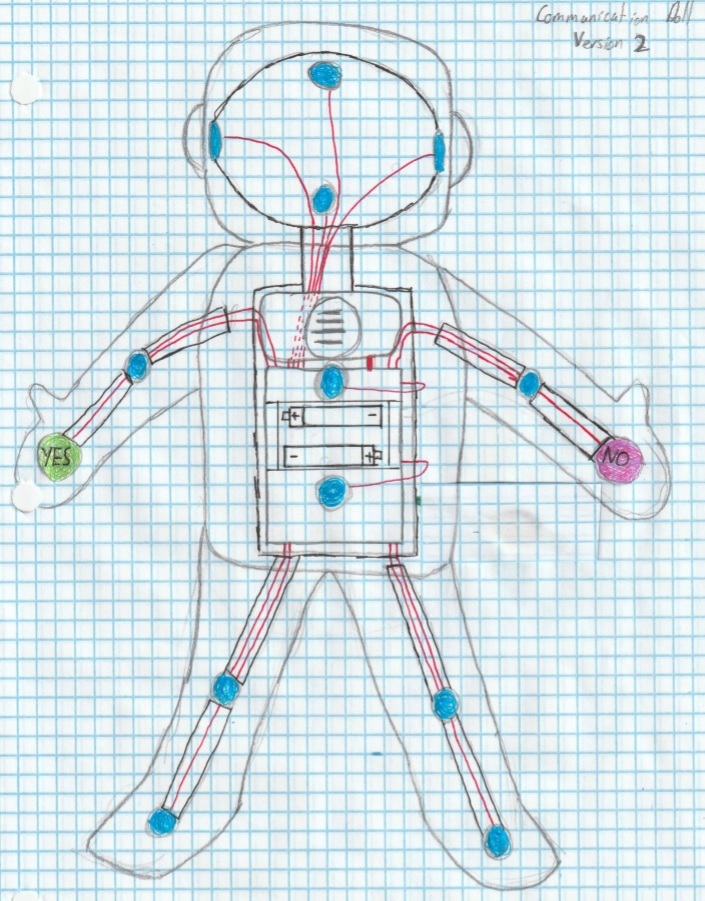 Communication Doll
Version 2
+ -
- +
YES
NO